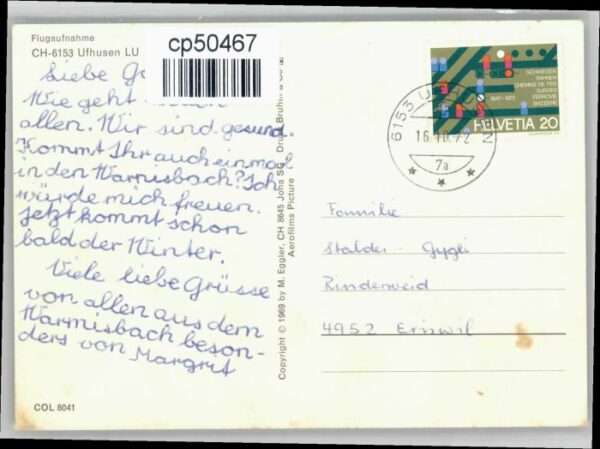 Flugaufnahme
CH-6153 Ufhusen LU
cp50467
Liebe
Wie geht
allen. Wir sind gesund.
Kommt Ihr auch einmal
in den Warmisbach? Ich
würde mich freuen.
Jetzt kommt schon
bald der Winter.
Viele liebe Grüsse
von allen aus dem
Warmisbach beson-
ders von Margrit
COL 8041
Copyright © 1969 by M. Eggler, CH 8645 Jona SG
Aerofilms Picture
6153
16.10.72
7a
1847-1972
HELVETIA 20
Familie
Stalder-Gygli
Rinderweid
4952 Eriswil